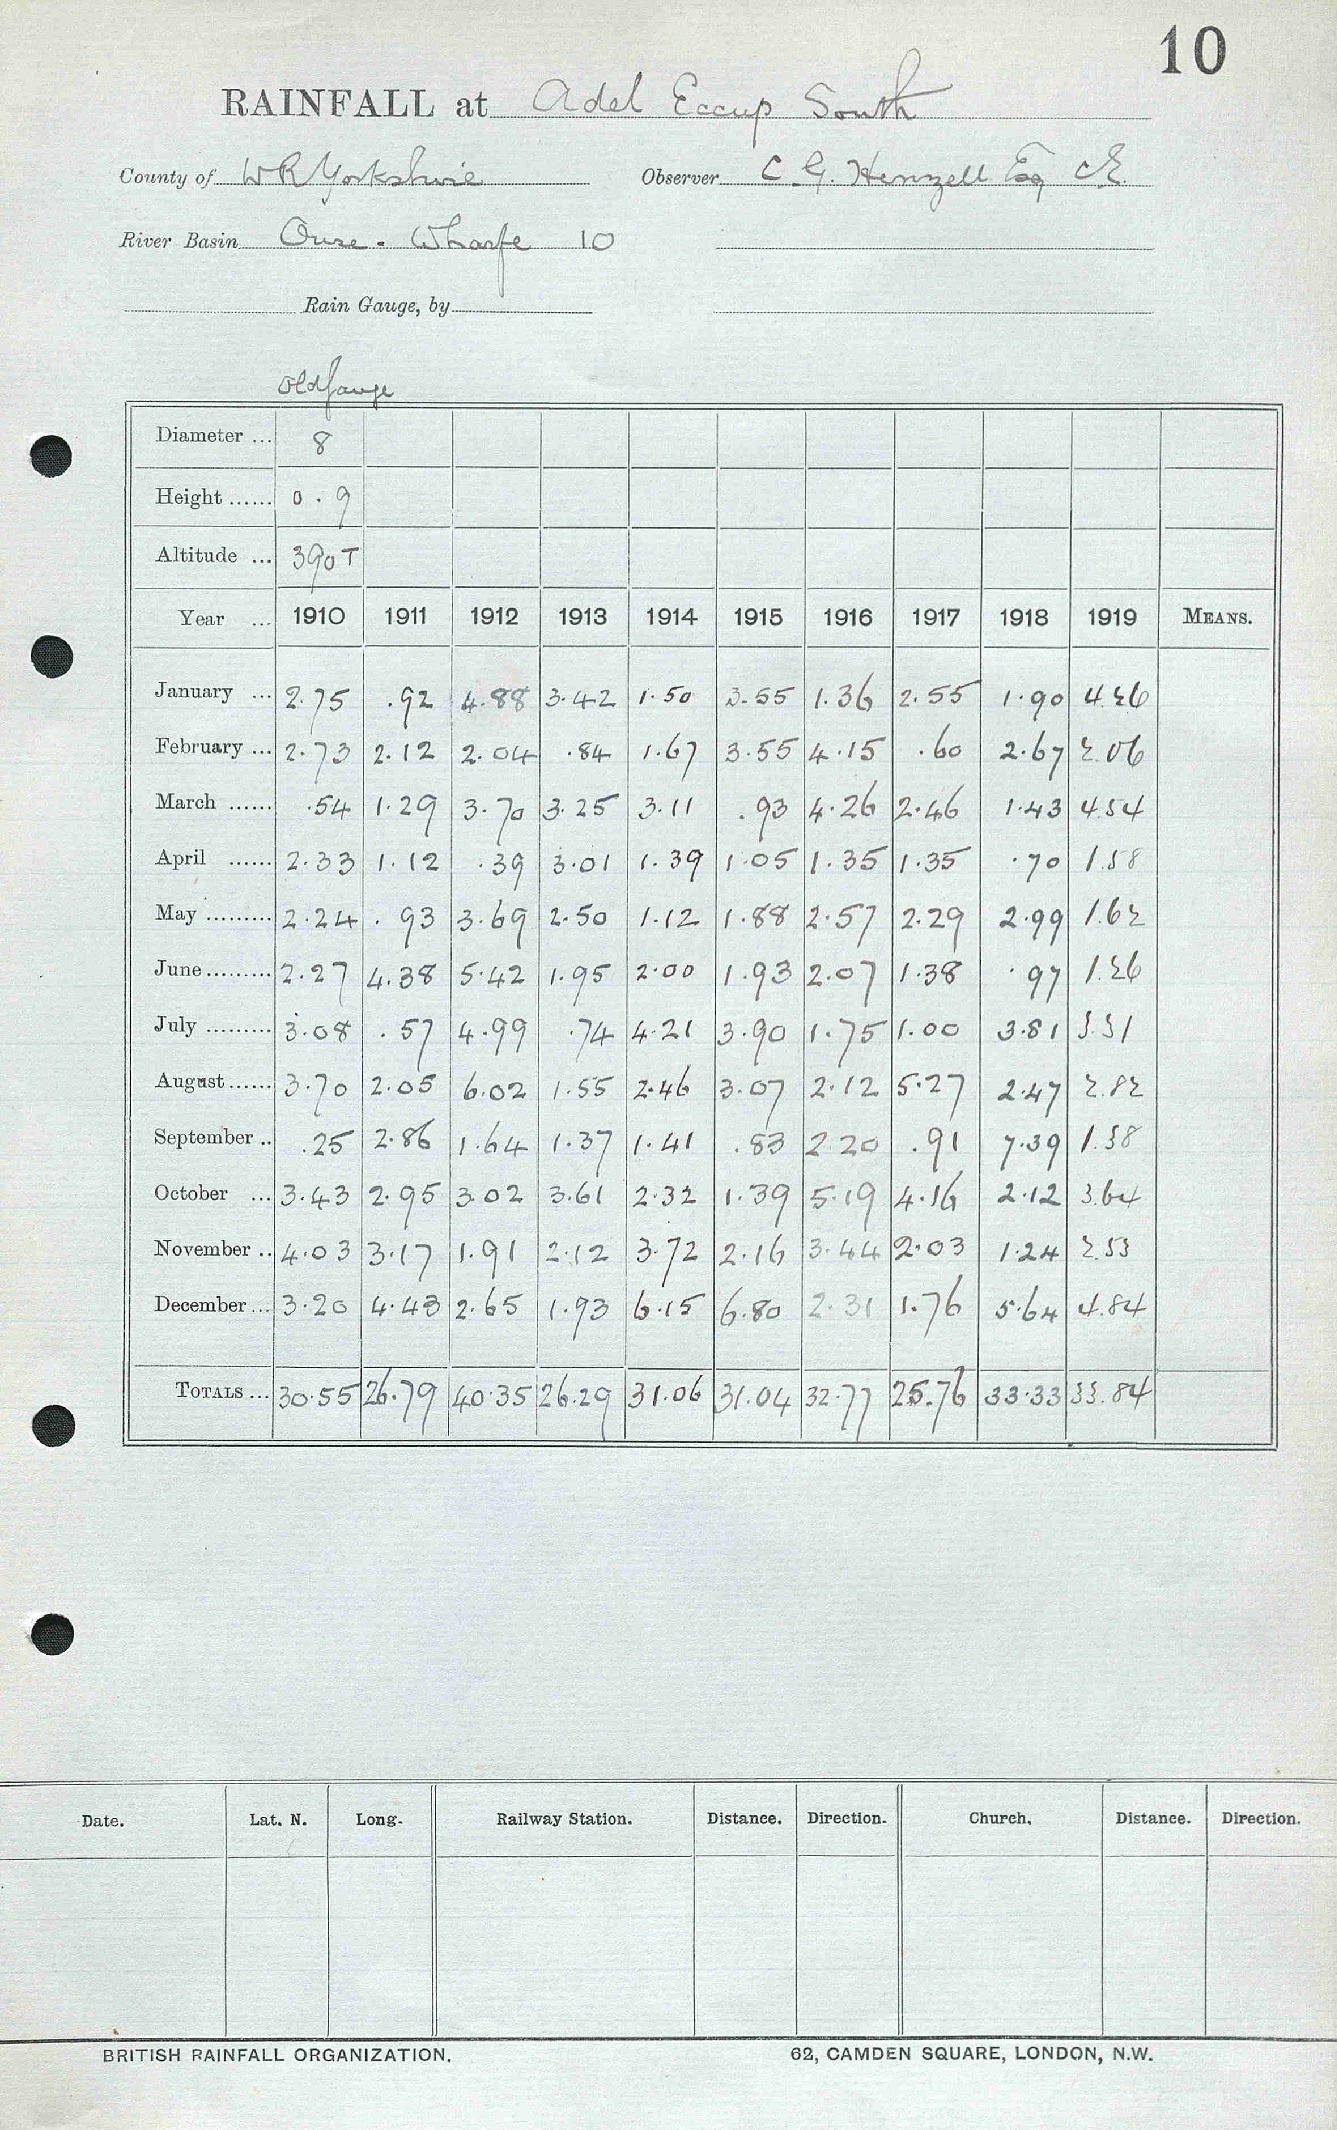 10
RAINFALL at Adel Eccup South
County of W R Yorkshire Observer C. G. Henzell Esq CE.
River Basin Ouse - Wharfe 10
Rain Gauge, by
Old Gauge
Diameter ... 8
Height ...... 0.9
Altitude ... 390 T
Year ... 1910 1911 1912 1913 1914 1915 1916 1917 1918 1919 MEANS.
January ... 2.75 .92 4.88 3.42 1.50 3.55 1.36 2.55 1.90 4.26
February ... 2.73 2.12 2.04 .84 1.67 3.55 4.15 .60 2.67 2.06
March ...... .54 1.29 3.70 3.25 3.11 .93 4.26 2.46 1.43 4.54
April ...... 2.33 1.12 .39 3.01 1.39 1.05 1.35 1.35 .70 1.58
May ......... 2.24 .93 3.69 2.50 1.12 1.88 2.57 2.29 2.99 1.62
June ......... 2.27 4.38 5.42 1.95 2.00 1.93 2.07 1.38 .97 1.26
July ......... 3.08 .57 4.99 .74 4.21 3.90 1.75 1.00 3.81 3.31
August ...... 3.70 2.05 6.02 1.55 2.46 3.07 2.12 5.27 2.47 2.82
September .. .25 2.86 1.64 1.37 1.41 .83 2.20 .91 7.39 1.38
October ... 3.43 2.95 3.02 3.61 2.32 1.39 5.19 4.16 2.12 3.64
November .. 4.03 3.17 1.91 2.12 3.72 2.16 3.44 2.03 1.24 2.53
December ... 3.20 4.43 2.65 1.93 6.15 6.80 2.31 1.76 5.64 4.84
TOTALS ... 30.55 26.79 40.35 26.29 31.06 31.04 32.77 25.76 33.33 33.84
Date. Lat. N. Long. Railway Station. Distance. Direction. Church. Distance. Direction.
BRITISH RAINFALL ORGANIZATION. 62, CAMDEN SQUARE, LONDON, N.W.